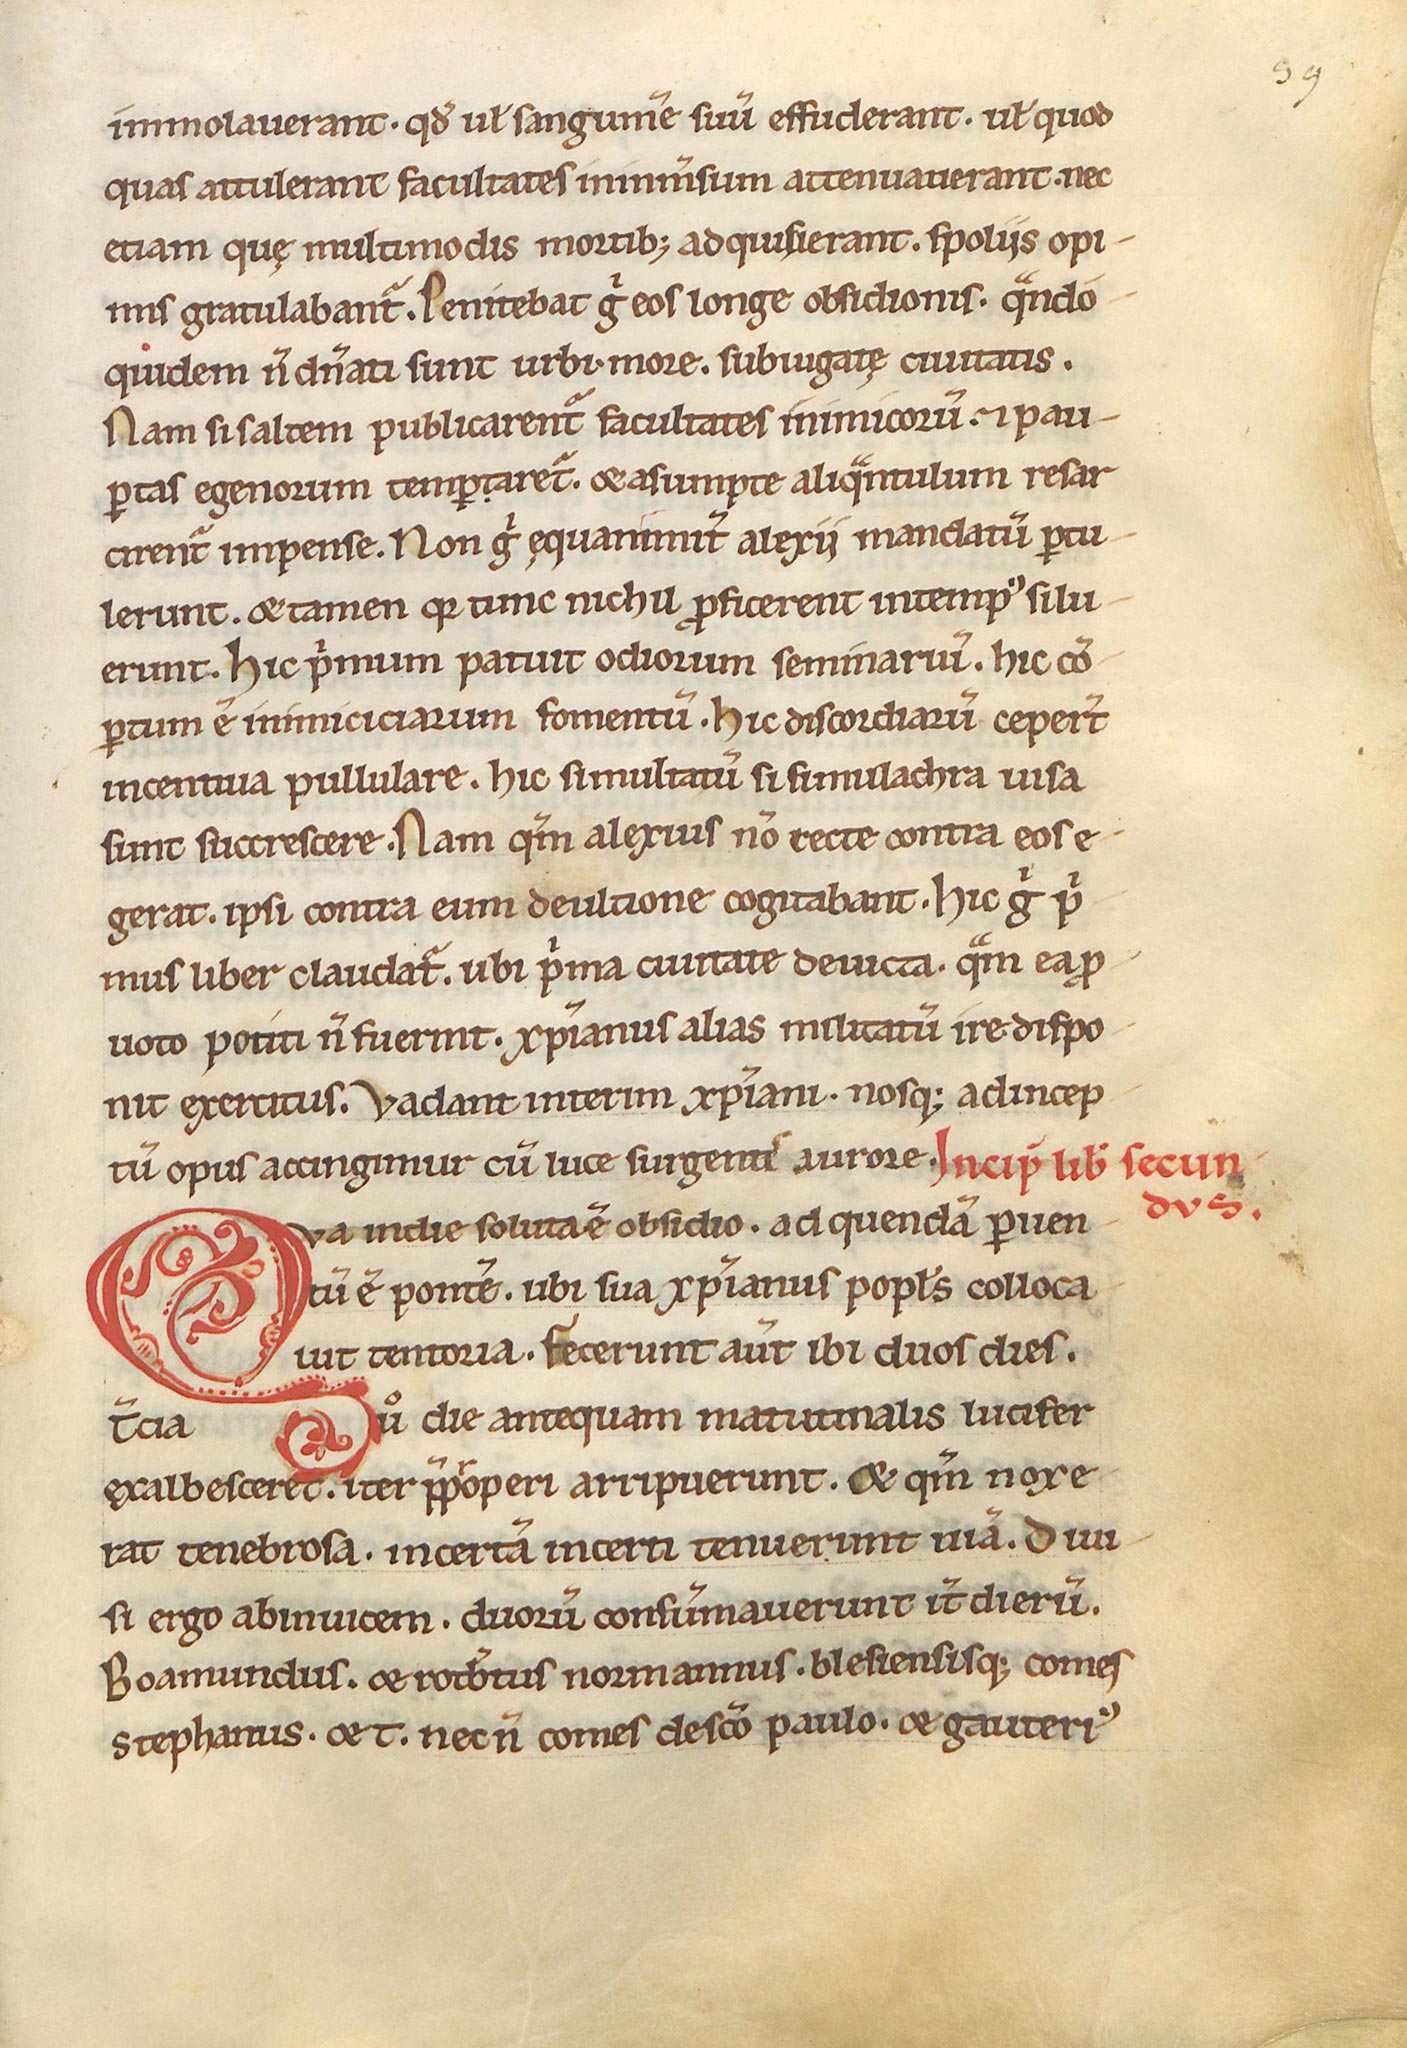 39
immolauerant. qđ uł sanguinē suū effuderant. uł quod
quas attulerant facultates inim̄sum attenuauerant. nec
etiam quę multimodis mortib; adquisierant. spoliis opi-
mis gratulabant᷑. Penitebat g̍ eos longe obsidionis. qͣndo-
quidem ñ dñati sunt urbi. more. subiugatę ciuitatis.
Nam si saltem publicarent᷑ facultates inimicorū. ⁊ pau-
ꝑtas egenorum temꝑaret᷑. & asumpte aliqͣntulum resar
cirent᷑ impense. Non g̍ ęquanimit̄ alexii mandatū ꝑtu-
lerunt. & tamen qꝛ tunc nichil ꝓficerent intempꝰ silu-
erunt. Hic p̍mum patuit odiorum seminariū. hic cō-
ꝑtum ē inimiciciarum fomentū. Hic discordiarū ceper̄t
incentiua pullulare. hic simultatū si simulachra uisa
sunt succrescere. Nam qm̄ alexius nō recte contra eos e-
gerat. ipsi contra eum deultione cogitabant. Hic g̍ p̍-
mus liber claudat᷑. ubi p̍ma ciuitate deuicta. qͣm ea ꝓ
uoto potiti ñ fuerint. xp̄ianus alias militatū ire dispo-
nit exercitus. Vadant interim xp̄iani. nosq; adincep-
tū opus accingimur cū luce surgentis aurore. Incip̄ lib̄ secun-
dvs.
Qva indie soluta ē obsidio. ad quendā ꝑuen-
tū ē pontē. ubi sua xp̄ianus popłs colloca-
uit tentoria. Fecerunt aūt ibi duos dies.
T̄cia uͦ die antequam matutinalis lucifer
exalbesceret. iter p̄p̄roperi arripuerunt. & qm̄ nox e-
rat tenebrosa. incertā incerti tenuerunt uiā. Diui-
si ergo abinuicem. duorū consūmauerunt it̄ dierū.
Boamundus. & rotb̄tus normannus. blesiensisq; comes
stephanus. & t. necñ comes descō paulo. & gauteriꝰ